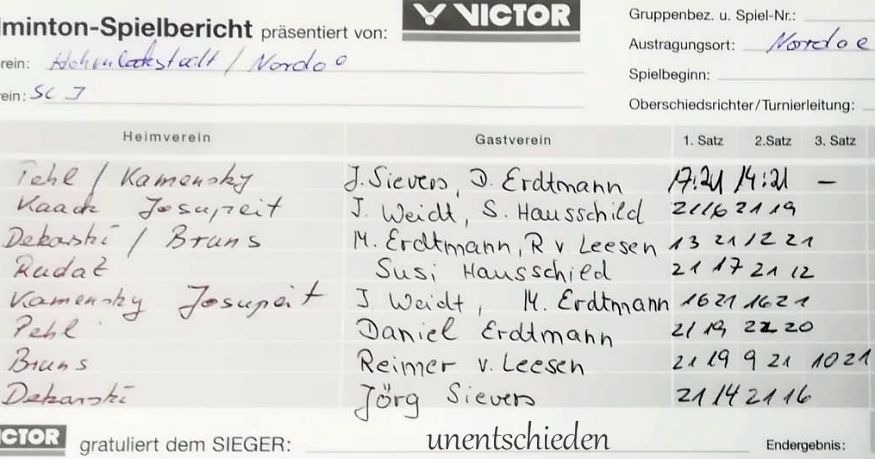 minton-Spielbericht präsentiert von: VICTOR
Gruppenbez. u. Spiel-Nr.:
Austragungsort: Nordoe
rein: Hohenlockstedt / Nordoe
Spielbeginn:
ein: SC J
Oberschiedsrichter/Turnierleitung:
Heimverein Gastverein 1. Satz 2.Satz 3. Satz
Pehl / Kamensky J. Sievers, D. Erdtmann 17:21 14:21 –
Kaack Josupeit J. Weidt, S. Hausschild 21 16 21 19
Dekarski / Bruns M. Erdtmann, R v Leesen 13 21 12 21
Rudat Susi Hausschild 21 17 21 12
Kamensky Josupeit J Weidt, M. Erdtmann 16 21 16 21
Pehl Daniel Erdtmann 21 19 22 20
Bruns Reimer v. Leesen 21 19 9 21 10 21
Dekarski Jörg Sievers 21 14 21 16
CTOR gratuliert dem SIEGER: unentschieden Endergebnis: